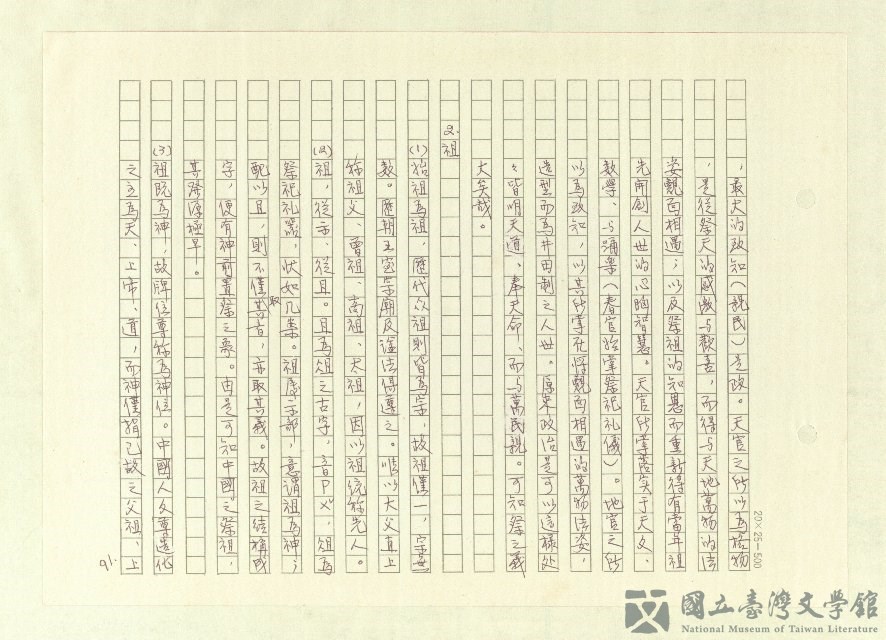 ，最大的致知（親民）是政。天官之所以為格物
，是從祭天的感激与歡喜，而得与天地萬物的法
姿親面相遇；以及祭祖的知恩而重新得有當年祖
先開創人世的心胸智慧。天官所掌落实于天文、
数學、与誦樂（春官始掌祭祀礼儀）。地官之所
以為致知，以其所掌在將親面相遇的萬物法姿，
造型而為井田制之人世。原來政治是可以這樣处
々皆明天道、奉天命、而与萬民親。可知祭之義
大矣哉。
2. 祖
(1)始祖為祖，歷代众祖則皆為宗，故祖僅一，宗無
数。歷朝王室宗廟及謚法得遵之。惟以大父直上
称祖父、曾祖、高祖、太祖，因以祖統称先人。
(2)祖，從示、從且。且為俎之古字，音ㄗㄨˇ，俎為
祭祀礼器，状如几案。祖屬示部，意謂祖為神；
配以且，則不僅取其音，亦取其義。故祖之結構成
字，便有神前置祭之象。由是可知中國之祭祖，
其發源極早。
(3)祖既為神，故牌位尊称為神位。中國人文尊造化
之主為天、上帝、道，而神僅指已故之父祖、上
91.
20×25=500
國立臺灣文學館
National Museum of Taiwan Literature